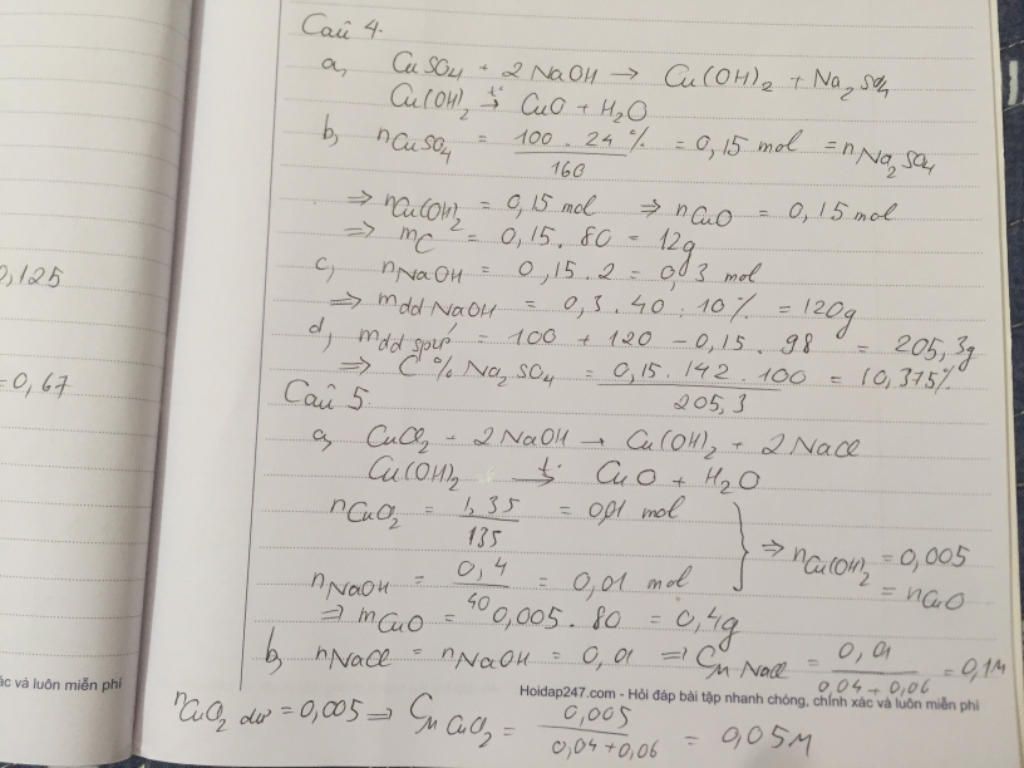 Câu 4.
a, CuSO4 + 2 NaOH → Cu(OH)2 + Na2SO4
Cu(OH)2 t° → CuO + H2O
b, nCuSO4 = 100 . 24 % / 160 = 0,15 mol = nNa2SO4
⇒ nCu(OH)2 = 0,15 mol ⇒ nCuO = 0,15 mol
⇒ mC = 0,15 . 80 = 12g
0,125
c, nNaOH = 0,15 . 2 = 0,3 mol
⇒ mdd NaOH = 0,3 . 40 : 10 % = 120g
d, mdd spứ = 100 + 120 - 0,15 . 98 = 205,3g
=0,67
⇒ C% Na2SO4 = 0,15 . 142 . 100 / 205,3 = 10,375%
Câu 5.
a, CuCl2 + 2 NaOH → Cu(OH)2 + 2 NaCl
Cu(OH)2 t° → CuO + H2O
nCuCl2 = 1,35 / 135 = 0,01 mol
nNaOH = 0,4 / 40 = 0,01 mol } ⇒ nCu(OH)2 = 0,005 = nCuO
⇒ mCuO = 0,005 . 80 = 0,4g
b, nNaCl = nNaOH = 0,01 ⇒ CM NaCl = 0,01 / 0,04 + 0,06 = 0,1M
ác và luôn miễn phí
Hoidap247.com - Hỏi đáp bài tập nhanh chóng, chính xác và luôn miễn phí
nCuCl2 dư = 0,005 ⇒ CM CuCl2 = 0,005 / 0,04 + 0,06 = 0,05M